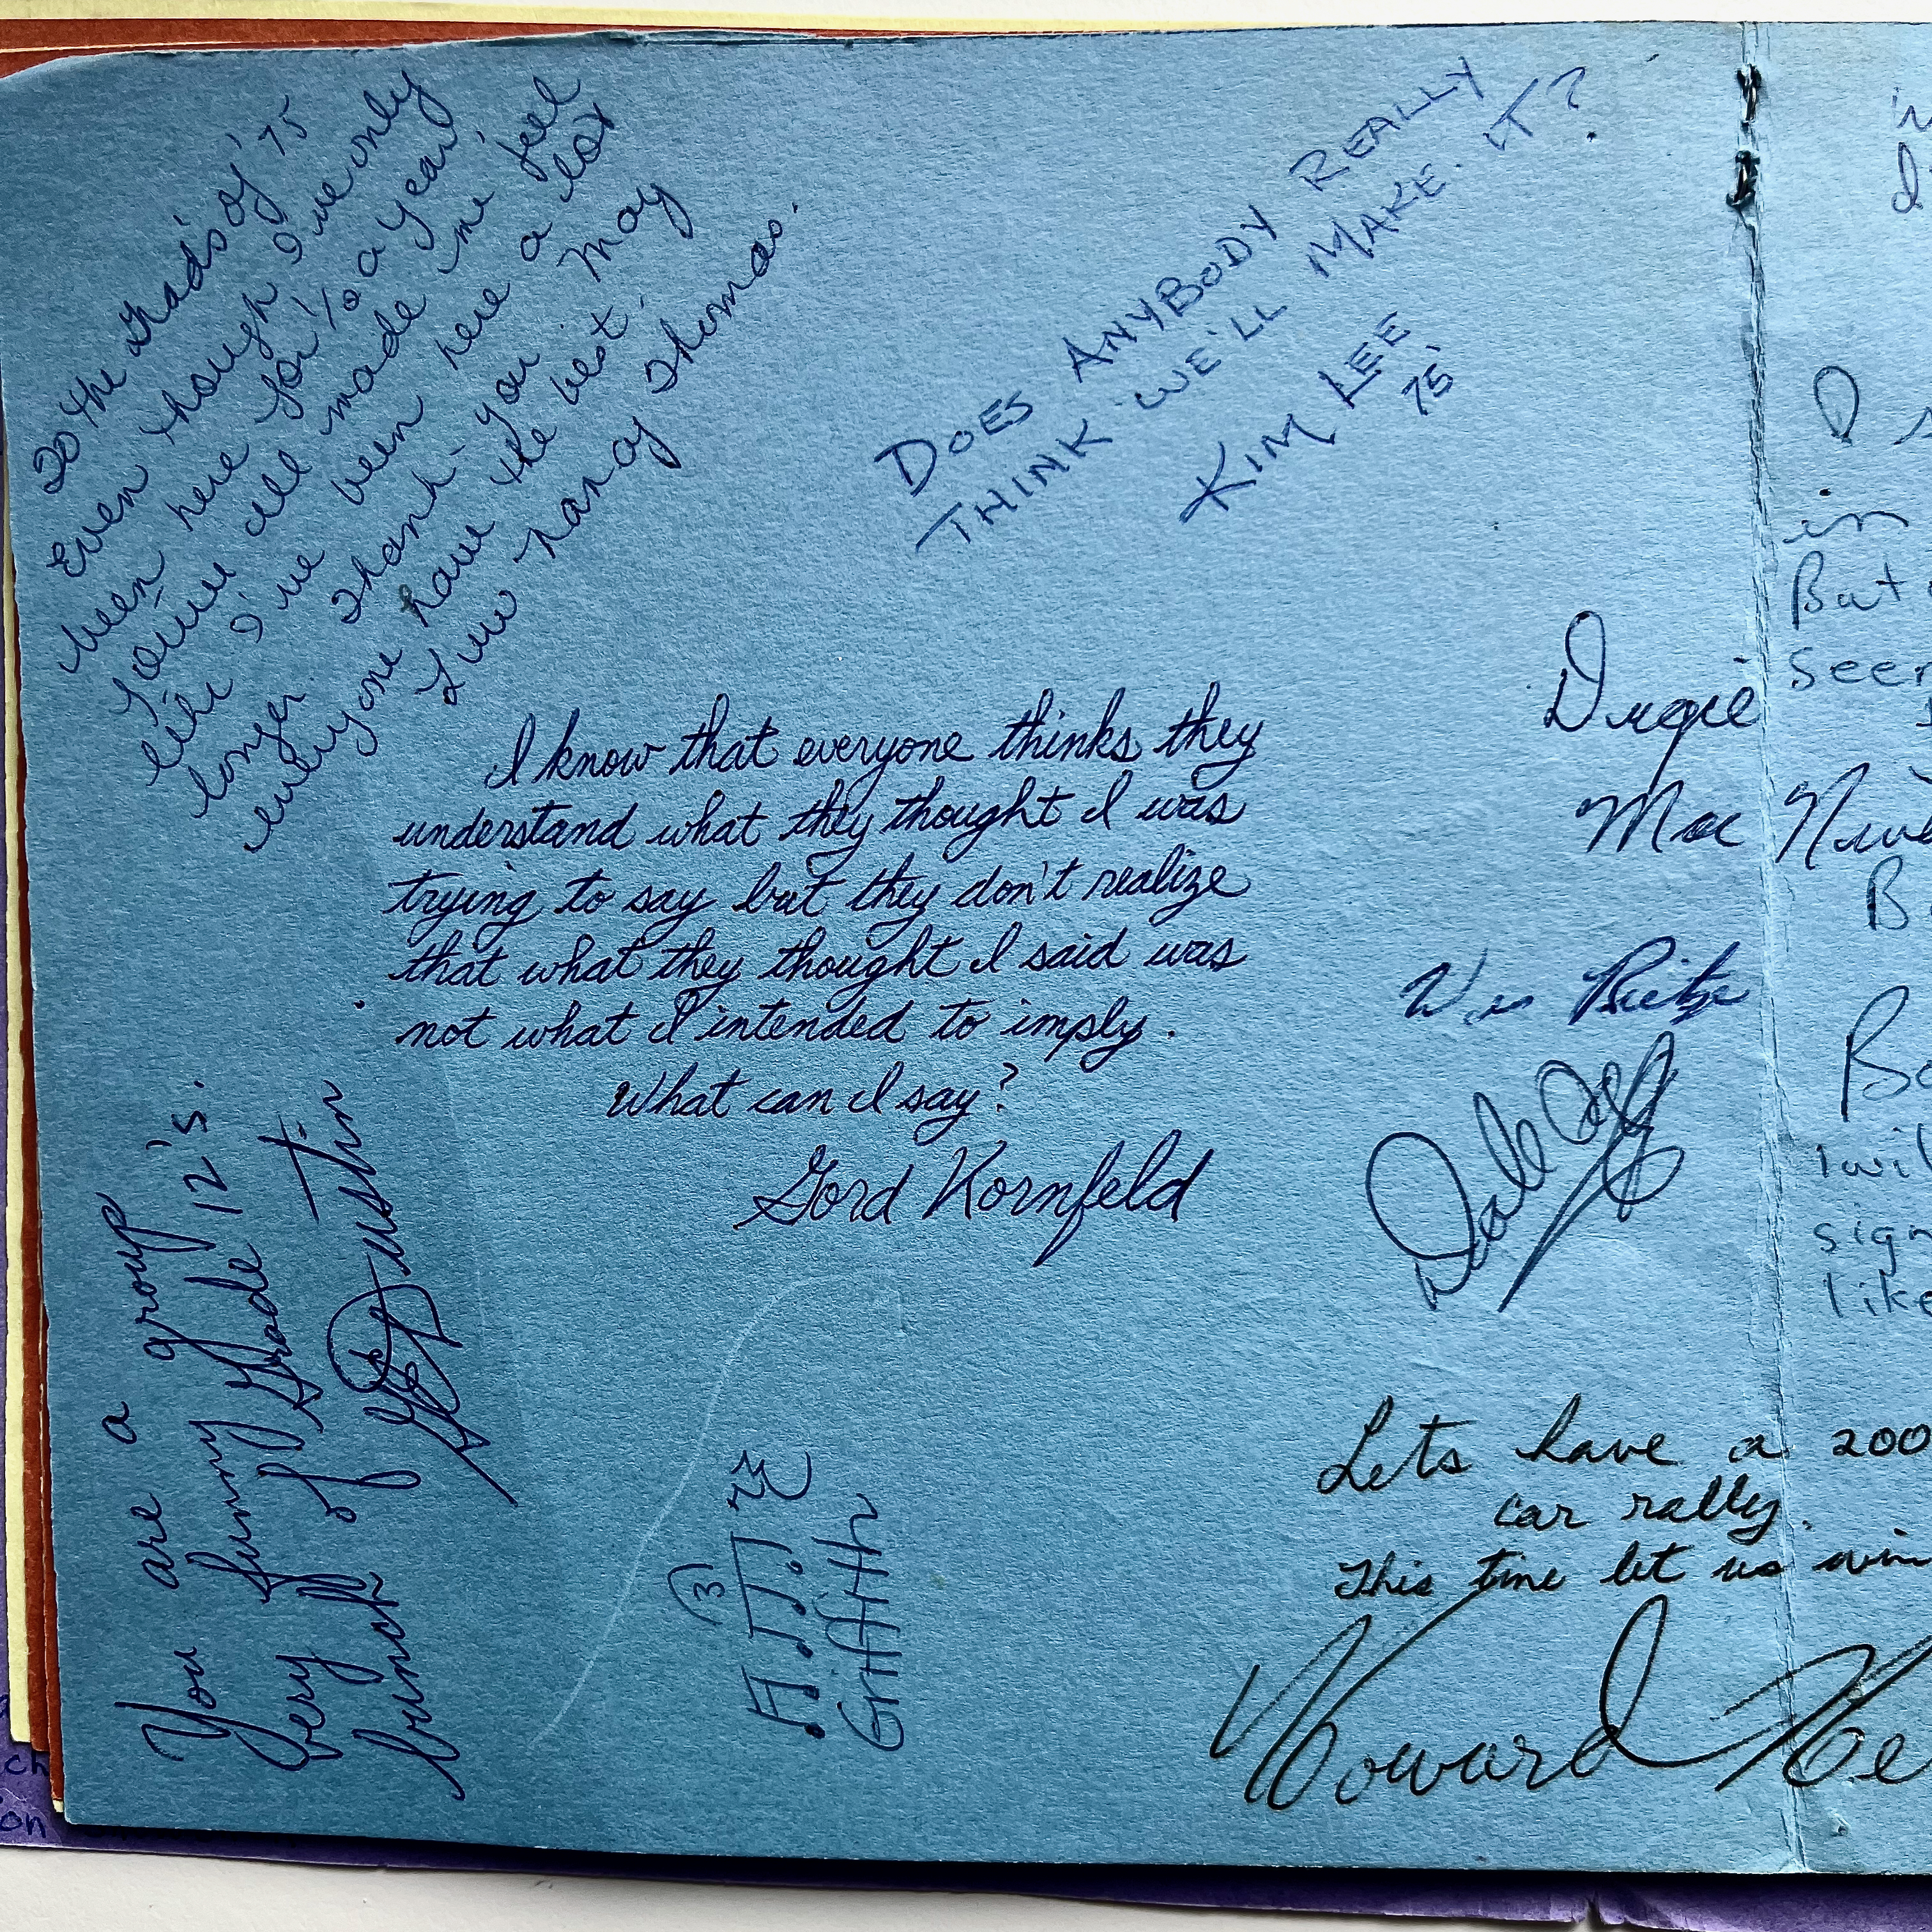 To the Grad's of '75
Even though I've only
been here for ½ a year,
you've all made me feel
like I've been here a lot
longer. Thank-you May
everyone have the best.
Luv Nancy Thomas.
DOES ANYBODY REALLY
THINK WE'LL MAKE IT?
KIM LEE
75'
I know that everyone thinks they
understand what they thought I was
trying to say but they don't realize
that what they thought I said was
not what I intended to imply.
What can I say?
Gord Kornfeld
You are a group
very funny Grade 12's.
bunch of
G. Dustin
(3)
Griffith
Dugie
Mac
Wes
Dale
Lets have a 200
car rally.
This time let us win
Howard
in
But
seer
B
Bo
I wil
sign
like
ch
on